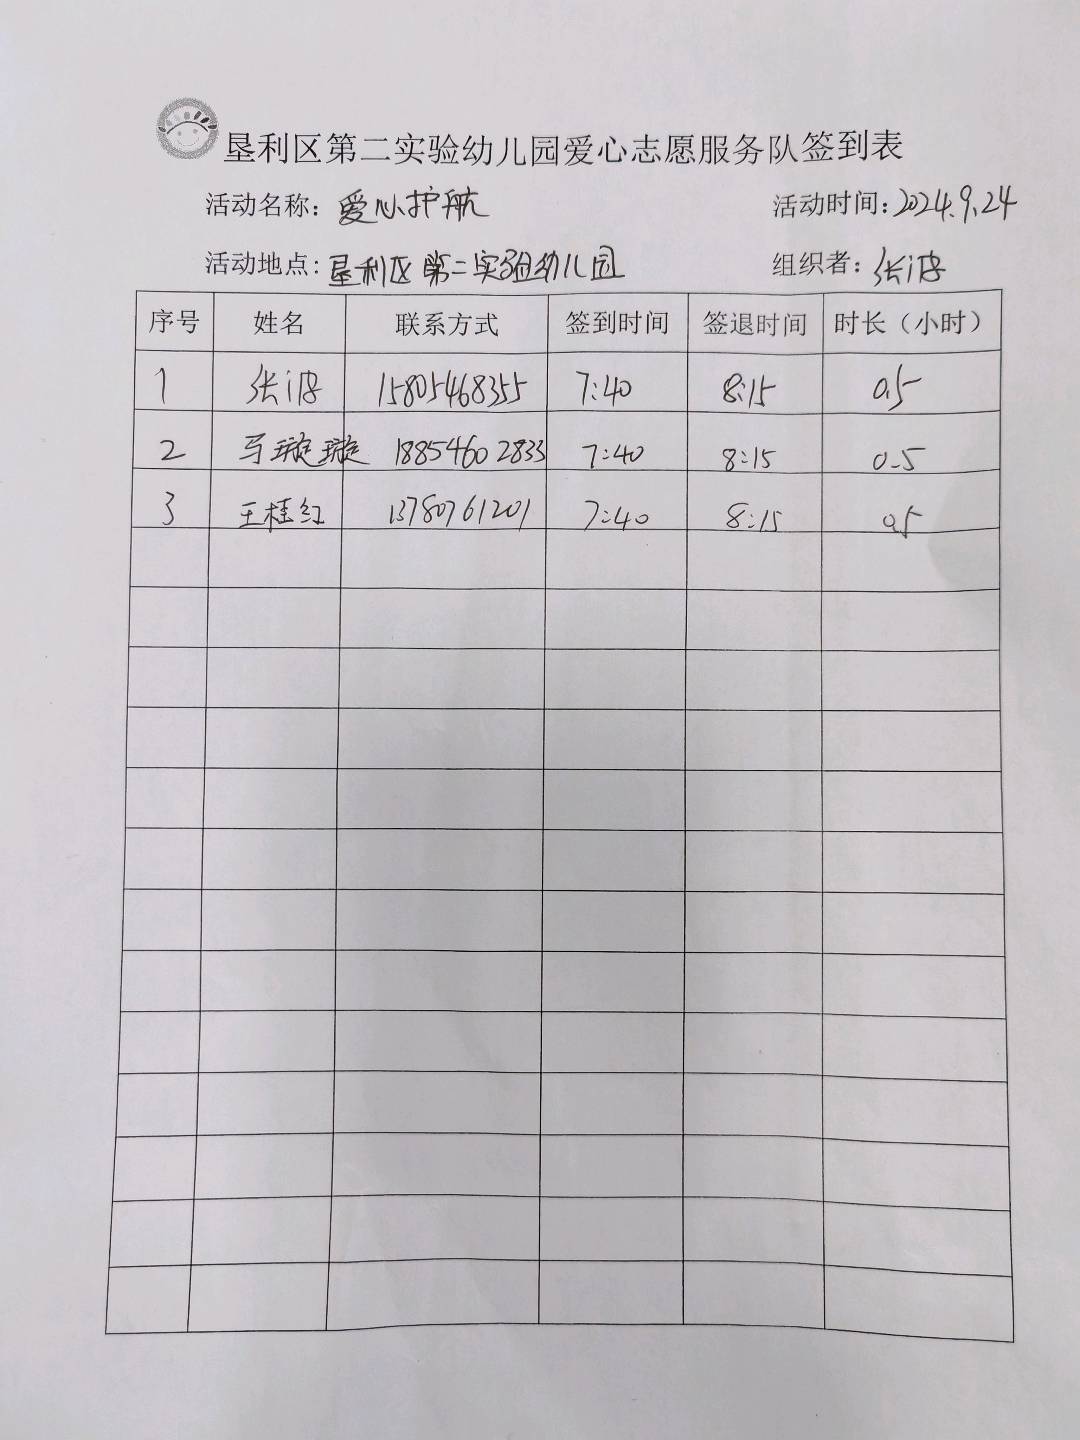 垦利区第二实验幼儿园爱心志愿服务队签到表
活动名称：爱心护航 活动时间：2024.9.24
活动地点：垦利区第二实验幼儿园 组织者：张波
序号 姓名 联系方式 签到时间 签退时间 时长（小时）
1 张波 15805468355 7:40 8:15 0.5
2 马璇璇 18854602833 7:40 8:15 0.5
3 王桂红 13780761201 7:40 8:15 0.5